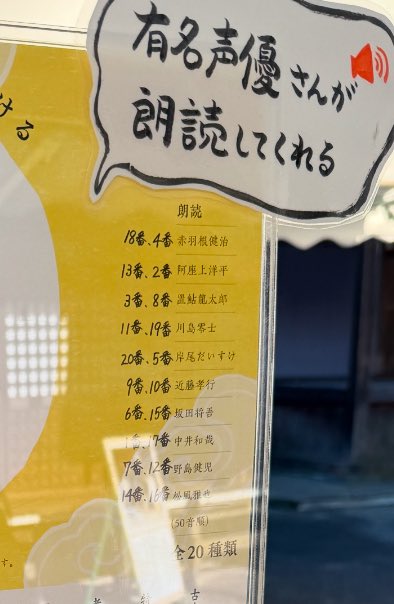 有名声優さんが
朗読してくれる
ける
朗読
18番、4番 赤羽根健治
13番、2番 阿座上洋平
3番、8番 置鮎龍太郎
11番、19番 川島零士
20番、5番 岸尾だいすけ
9番、10番 近藤孝行
6番、15番 坂田将吾
1番、17番 中井和哉
7番、12番 野島健児
14番、16番 松風雅也
(50音順)
全20種類
す。